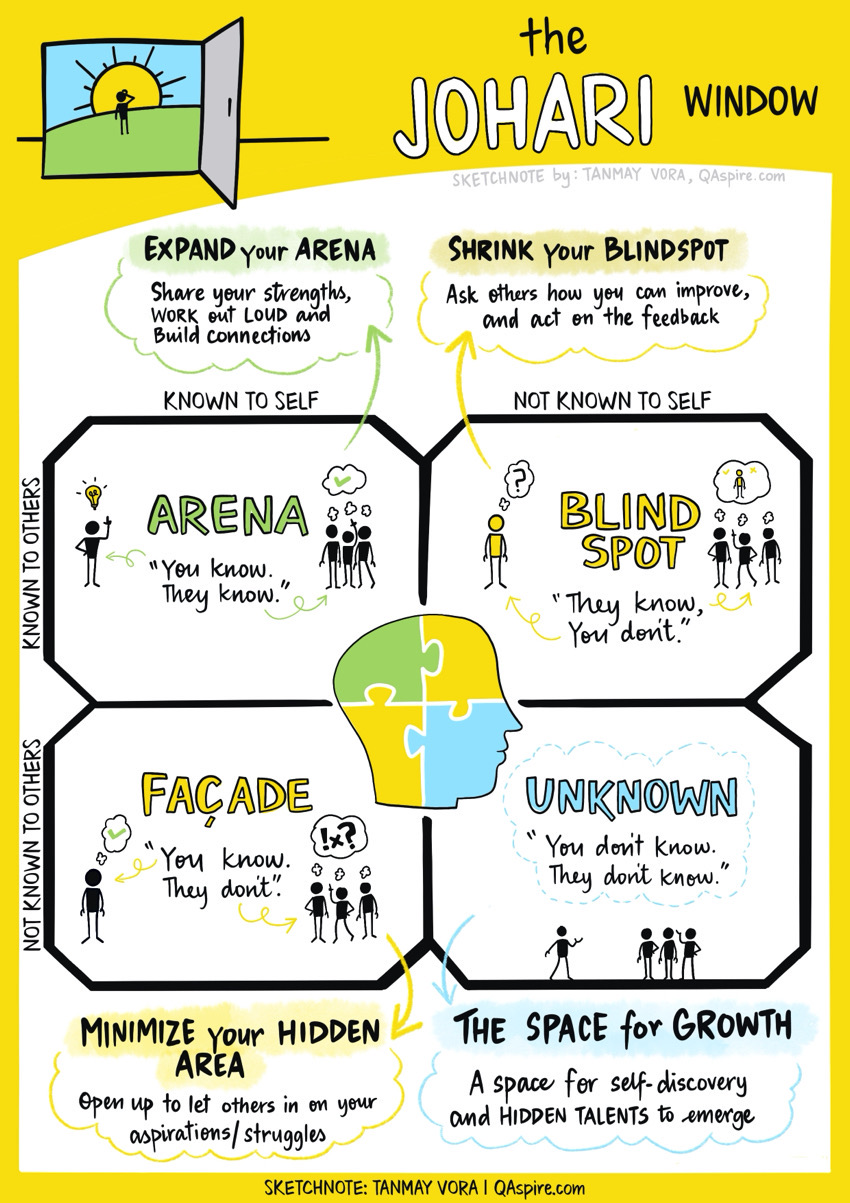 the
JOHARI WINDOW
SKETCHNOTE by: TANMAY VORA, QAspire.com
EXPAND your ARENA
Share your strengths,
WORK out LOUD and
Build connections
SHRINK your BLINDSPOT
Ask others how you can improve,
and act on the feedback
KNOWN TO SELF
NOT KNOWN TO SELF
KNOWN TO OTHERS
ARENA
"You know.
They know."
?
BLIND
SPOT
"They know,
You don't."
NOT KNOWN TO OTHERS
FAÇADE
"You know.
They don't".
!x?
UNKNOWN
"You don't know.
They don't know."
MINIMIZE your HIDDEN
AREA
Open up to let others in on your
aspirations/struggles
THE SPACE for GROWTH
A space for self-discovery
and HIDDEN TALENTS to emerge
SKETCHNOTE: TANMAY VORA | QAspire.com